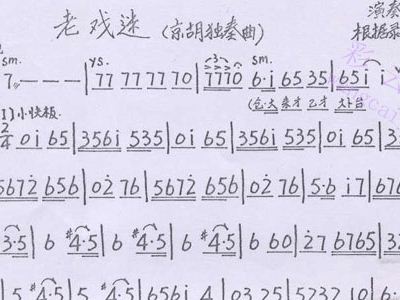 老戏迷 (京胡独奏曲) 演奏
根据录
sm. ys. sm.
7 – – – | 77 77 77 70 | 7770 6·i 65 35 | 65 i i
(仓·大 来才 乙才 大台
小快板
2/4 0i 65 | 356i 535 | 0i 65 | 356i 535 | 0i 65 | 3
5672 656 | 02 76 | 5672 656 | 02 76 | 5·6 i7 | 676
3·5 | 6 #4·5 | 6 #4·5 | 6 #4·5 | 6 60 | 27 6765 | 32
5 #4·5 | 5 #4·5 | 656i 4 | 03 25 | 5232 10 | 6